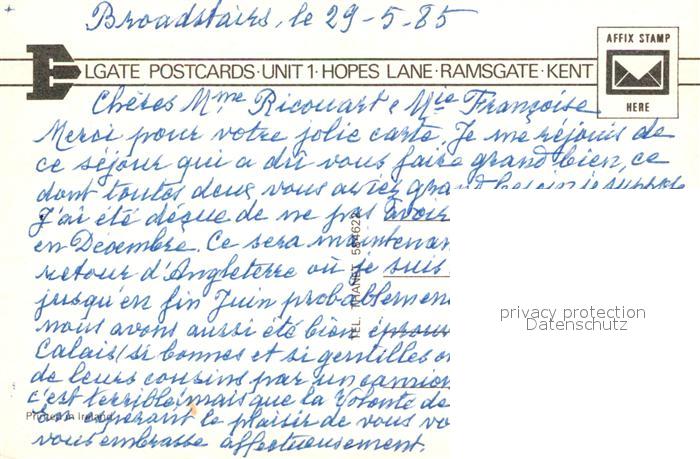 Broadstairs, le 29-5-85
AFFIX STAMP
HERE
ELGATE POSTCARDS · UNIT 1 · HOPES LANE · RAMSGATE · KENT
Chères Mme Ricouart e Mie Françoise
Merci pour votre jolie carte. Je me réjouis de
ce séjour qui a dû vous faire grand bien, ce
dont toutes deux vous aviez grand besoin je suppose
J'ai été déçue de ne pas avoir
en Décembre. Ce sera maintenan
retour d'Angleterre où je suis
jusqu'en fin Juin probablemen
nous avons aussi été bien
Calais (si bonnes et si gentilles
de leurs cousins par un camion
c'est terrible mais que la Volonté de
espérant le plaisir de vous
vous embrasse affectueusement.
TEL. THANET 584622
Printed in Ireland
privacy protection
Datenschutz